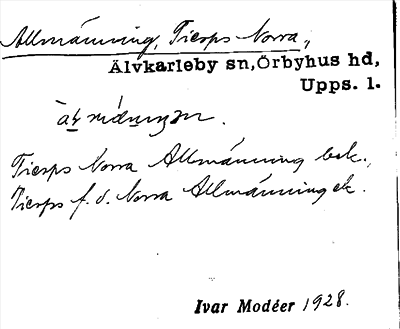 Allmänning, Tierps Norra,
Älvkarleby sn, Örbyhus hd,
Upps. l.
Tierps Norra Allmänning bek.,
Tierps f. d. Norra Allmänning ek.
Ivar Modéer 1928.